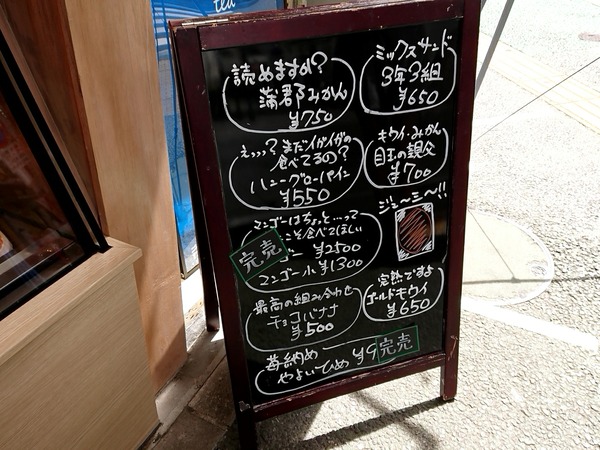 tea
読めますか?
蒲郡みかん
¥750
ミックスサンド
3年3組
¥650
え,,,,?まだイガイガの
食べてるの?
ハニーグローパイン
¥550
キウイ・みかん
目玉の親父
¥700
マンゴーはちょっと…って
こそ食べてほしい
ー ¥2500
マンゴー小 ¥1300
完売
ジューシー!!
最高の組み合わせ
チョコバナナ
¥500
完熟ですよ
ゴールドキウイ
¥650
苺納め
やよいひめ ¥9
完売